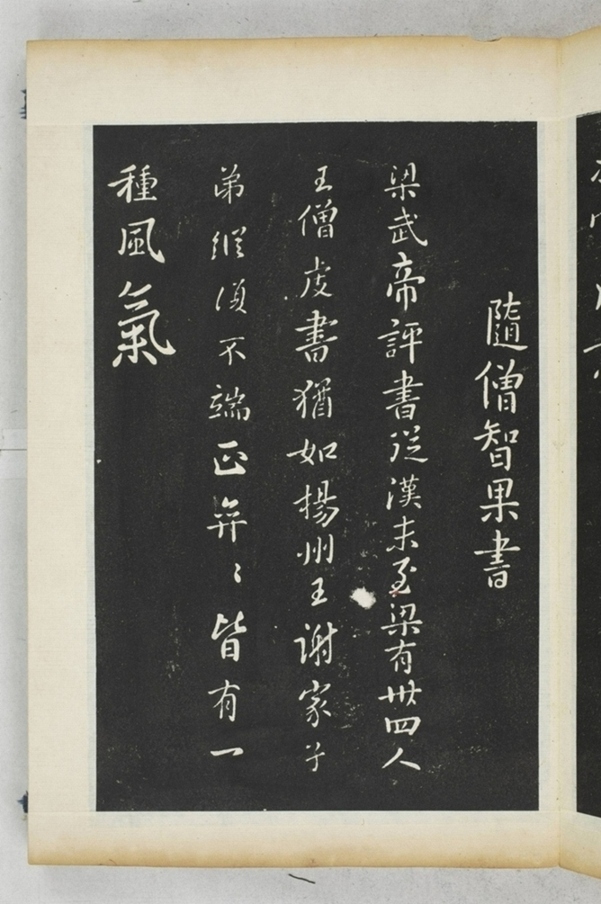 隨僧智果書
梁武帝評書從漢末至梁有卅四人
王僧虔書猶如揚州王謝家子
弟縱須不端正奕〻皆有一
種風氣